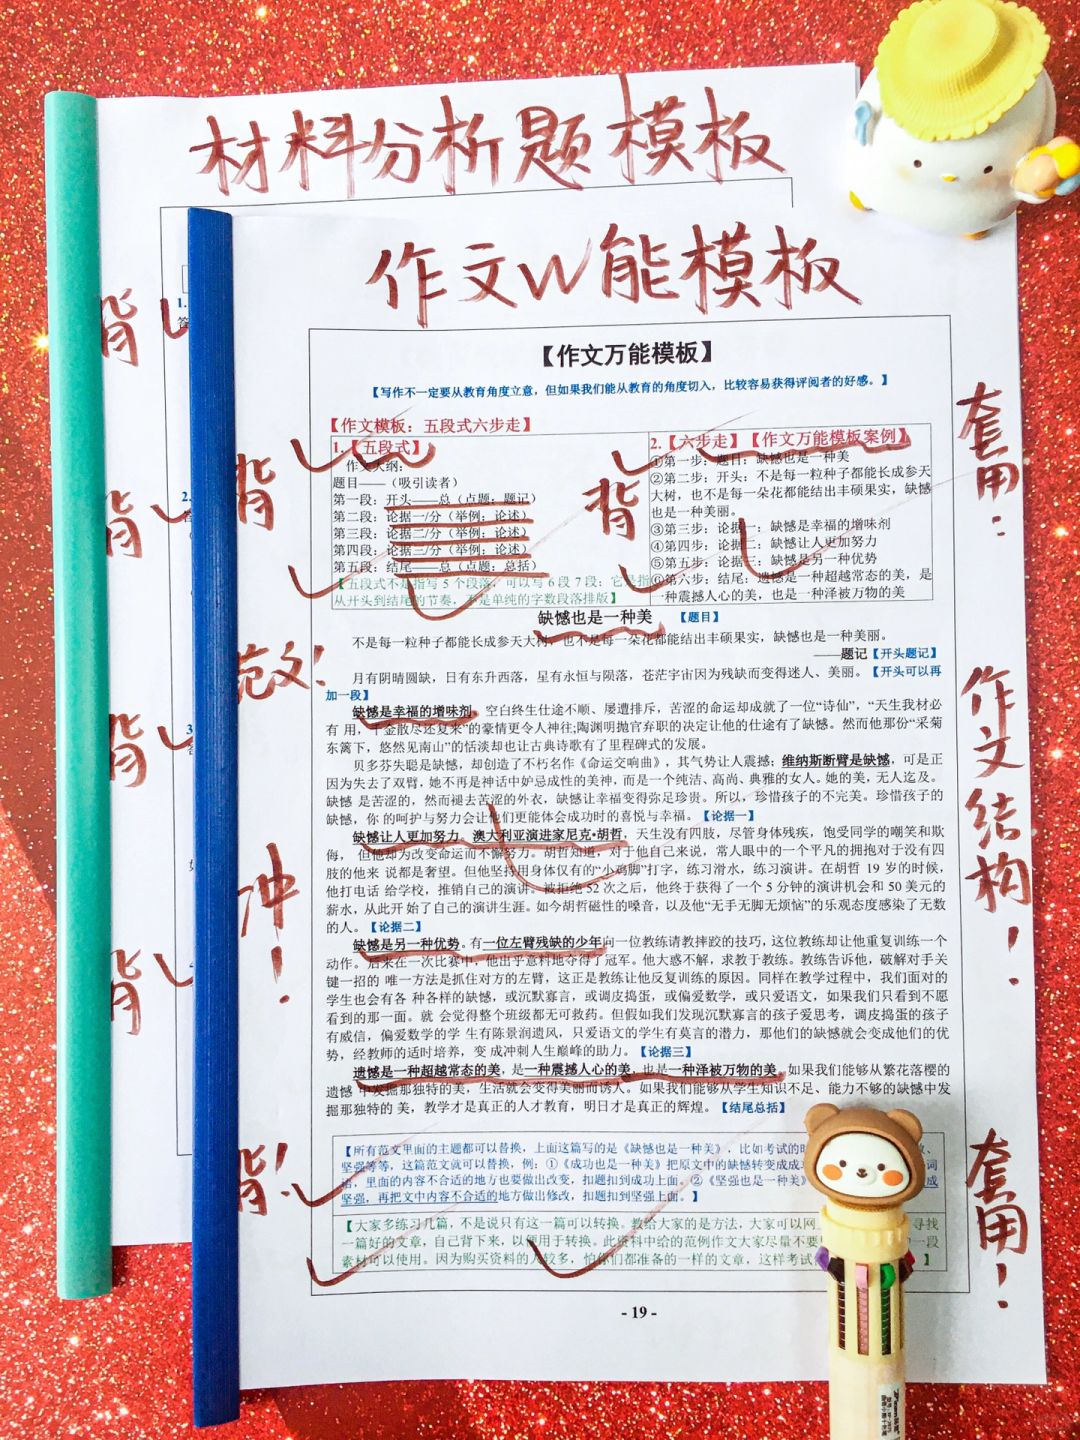 材料分析题模板
作文W能模板
【作文万能模板】
【写作不一定要从教育角度立意，但如果我们能从教育的角度切入，比较容易获得评阅者的好感。】
【作文模板：五段式六步走】
1.【五段式】
作文大纲：
题目——（吸引读者）
第一段：开头——总（点题；题记）
第二段：论据一/分（举例；论述）
第三段：论据二/分（举例；论述）
第四段：论据三/分（举例；论述）
第五段：结尾——总（点题；总括）
【五段式不是指写5个段落，可以写6段7段；它是指
从开头到结尾的节奏，不是单纯的字数段落排版】
2.【六步走】【作文万能模板案例】
①第一步：题目：缺憾也是一种美
②第二步：开头：不是每一粒种子都能长成参天
大树，也不是每一朵花都能结出丰硕果实，缺憾
也是一种美丽。
③第三步：论据一：缺憾是幸福的增味剂
④第四步：论据二：缺憾让人更加努力
⑤第五步：论据三：缺憾是另一种优势
⑥第六步：结尾：遗憾是一种超越常态的美，是
一种震撼人心的美，也是一种泽被万物的美
缺憾也是一种美 【题目】
不是每一粒种子都能长成参天大树，也不是每一朵花都能结出丰硕果实，缺憾也是一种美丽。
——题记【开头题记】
月有阴晴圆缺，日有东升西落，星有永恒与陨落，苍茫宇宙因为残缺而变得迷人、美丽。【开头可以再
加一段】
缺憾是幸福的增味剂。空白终生仕途不顺、屡遭排斥，苦涩的命运却成就了一位“诗仙”，“天生我材必
有 用，千金散尽还复来”的豪情更令人神往;陶渊明抛官弃职的决定让他的仕途有了缺憾。然而他那份“采菊
东篱下，悠然见南山”的恬淡却也让古典诗歌有了里程碑式的发展。
贝多芬失聪是缺憾，却创造了不朽名作《命运交响曲》，其气势让人震撼；维纳斯断臂是缺憾，可是正
因为失去了双臂，她不再是神话中妒忌成性的美神，而是一个纯洁、高尚、典雅的女人。她的美，无人迄及。
缺憾 是苦涩的，然而褪去苦涩的外衣，缺憾让幸福变得弥足珍贵。所以，珍惜孩子的不完美。珍惜孩子的
缺憾，你 的呵护与努力会让他们更能体会成功时的喜悦与幸福。【论据一】
缺憾让人更加努力。澳大利亚演进家尼克•胡哲，天生没有四肢，尽管身体残疾，饱受同学的嘲笑和欺
侮， 但他却为改变命运而不懈努力。胡哲知道，对于他自己来说，常人眼中的一个平凡的拥抱对于没有四
肢的他来 说都是奢望。但他坚持用身体仅有的“小鸡脚”打字，练习滑水，练习演讲。在胡哲 19 岁的时候，
他打电话 给学校，推销自己的演讲。被拒绝 52 次之后，他终于获得了一个 5 分钟的演讲机会和 50 美元的
薪水，从此开 始了自己的演讲生涯。如今胡哲磁性的嗓音，以及他“无手无脚无烦恼”的乐观态度感染了无数
的人。【论据二】
缺憾是另一种优势。有一位左臂残缺的少年向一位教练请教摔跤的技巧，这位教练却让他重复训练一个
动作。后来在一次比赛中，他出乎意料地夺得了冠军。他大惑不解，求教于教练。教练告诉他，破解对手关
键一招的 唯一方法是抓住对方的左臂，这正是教练让他反复训练的原因。同样在教学过程中，我们面对的
学生也会有各 种各样的缺憾，或沉默寡言，或调皮捣蛋，或偏爱数学，或只爱语文，如果我们只看到不愿
看到的那一面。就 会觉得整个班级都无可救药。但假如我们发现沉默寡言的孩子爱思考，调皮捣蛋的孩子
有威信，偏爱数学的学 生有陈景润遗风，只爱语文的学生有莫言的潜力，那他们的缺憾就会变成他们的优
势，经教师的适时培养，变 成冲刺人生巅峰的助力。【论据三】
遗憾是一种超越常态的美，是一种震撼人心的美，也是一种泽被万物的美。如果我们能够从繁花落樱的
遗憾 中发掘那独特的美，生活就会变得美丽而诱人。如果我们能够从学生知识不足、能力不够的缺憾中发
掘那独特的 美，教学才是真正的人才教育，明日才是真正的辉煌。【结尾总括】
【所有范文里面的主题都可以替换，上面这篇写的是《缺憾也是一种美》，比如考试的时
坚强等等，这篇范文就可以替换，例：①《成功也是一种美》把原文中的缺憾转变成成 词
语，里面的内容不合适的地方也要做出改变，扣题扣到成功上面。②《坚强也是一种美》 成
坚强，再把文中内容不合适的地方做出修改，扣题扣到坚强上面。】
【大家多练习几篇，不是说只有这一篇可以转换。教给大家的是方法，大家可以网 寻找
一篇好的文章，自己背下来，以便用于转换。此资料中给的范例作文大家尽量不要 的一段
素材可以使用。因为购买资料的人较多，怕你们都准备的一样的文章，这样考试 】
- 19 -
背
背
背
背
背
背
范文！
冲！
背！
套用：
作文结构！
套用！